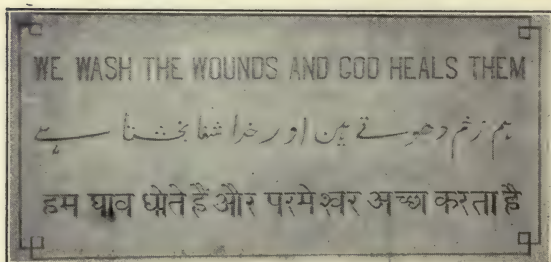 WE WASH THE WOUNDS AND GOD HEALS THEM
ہم زخم دھوتے ہین اور خدا شفا بخشتا ہے
हम घाव धोते हैं और परमेश्वर अच्छा करता है